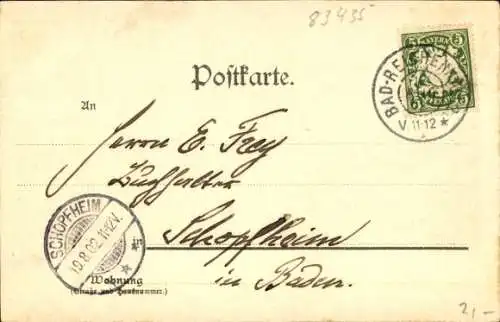 83455
5 BAYERN 5
BAD-REICHENH
V.11-12 *
Postkarte.
An
Herrn E. Frey
Buchhalter
in Schopfheim
in Baden.
SCHOPFHEIM
19.8.02.11-12V.
*
Wohnung
(Straße und Hausnummer.)
21,-